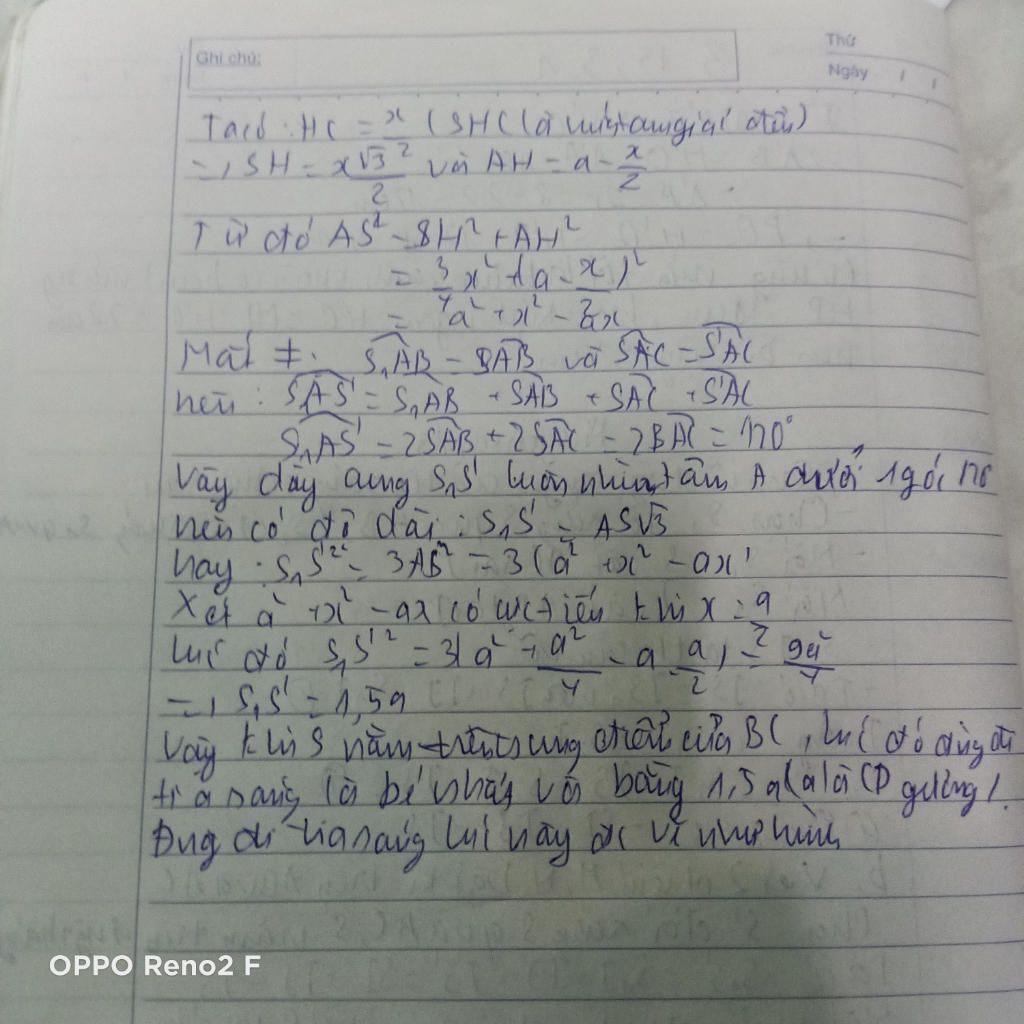 Ghi chú:
Thứ
Ngày / /
Ta có: HC = x/2 (SHC là nửa tam giác đều)
=> SH = x√3/2 và AH = a - x/2
Từ đó AS² = SH² + AH²
= 3/4 x² + (a - x/2)²
= a² + x² - ax
Mắt ≠. S₁AB = SAB và SAC = S'AC
nên: S₁AS' = S₁AB + SAB + SAC + S'AC
S₁AS' = 2SAB + 2SAC = 2BAC = 120°
Vậy dây cung S₁S' luôn nhìn tâm A dưới 1 góc 120
nên có độ dài: S₁S' = AS√3
hay: S₁S'² = 3AB² = 3(a² + x² - ax)
Xét a² + x² - ax có cực tiểu khi x = a/2
lúc đó S₁S'² = 3(a² + a²/4 - a a/2) = 9a²/4
=> S₁S' = 1,5a
Vậy khi S nằm trên trung điểm của BC, lúc đó đường đi
tia sáng là bé nhất và bằng 1,5a (a là CD gương).
Đng đi tia sáng lúc này đc vẽ như hình
OPPO Reno2 F